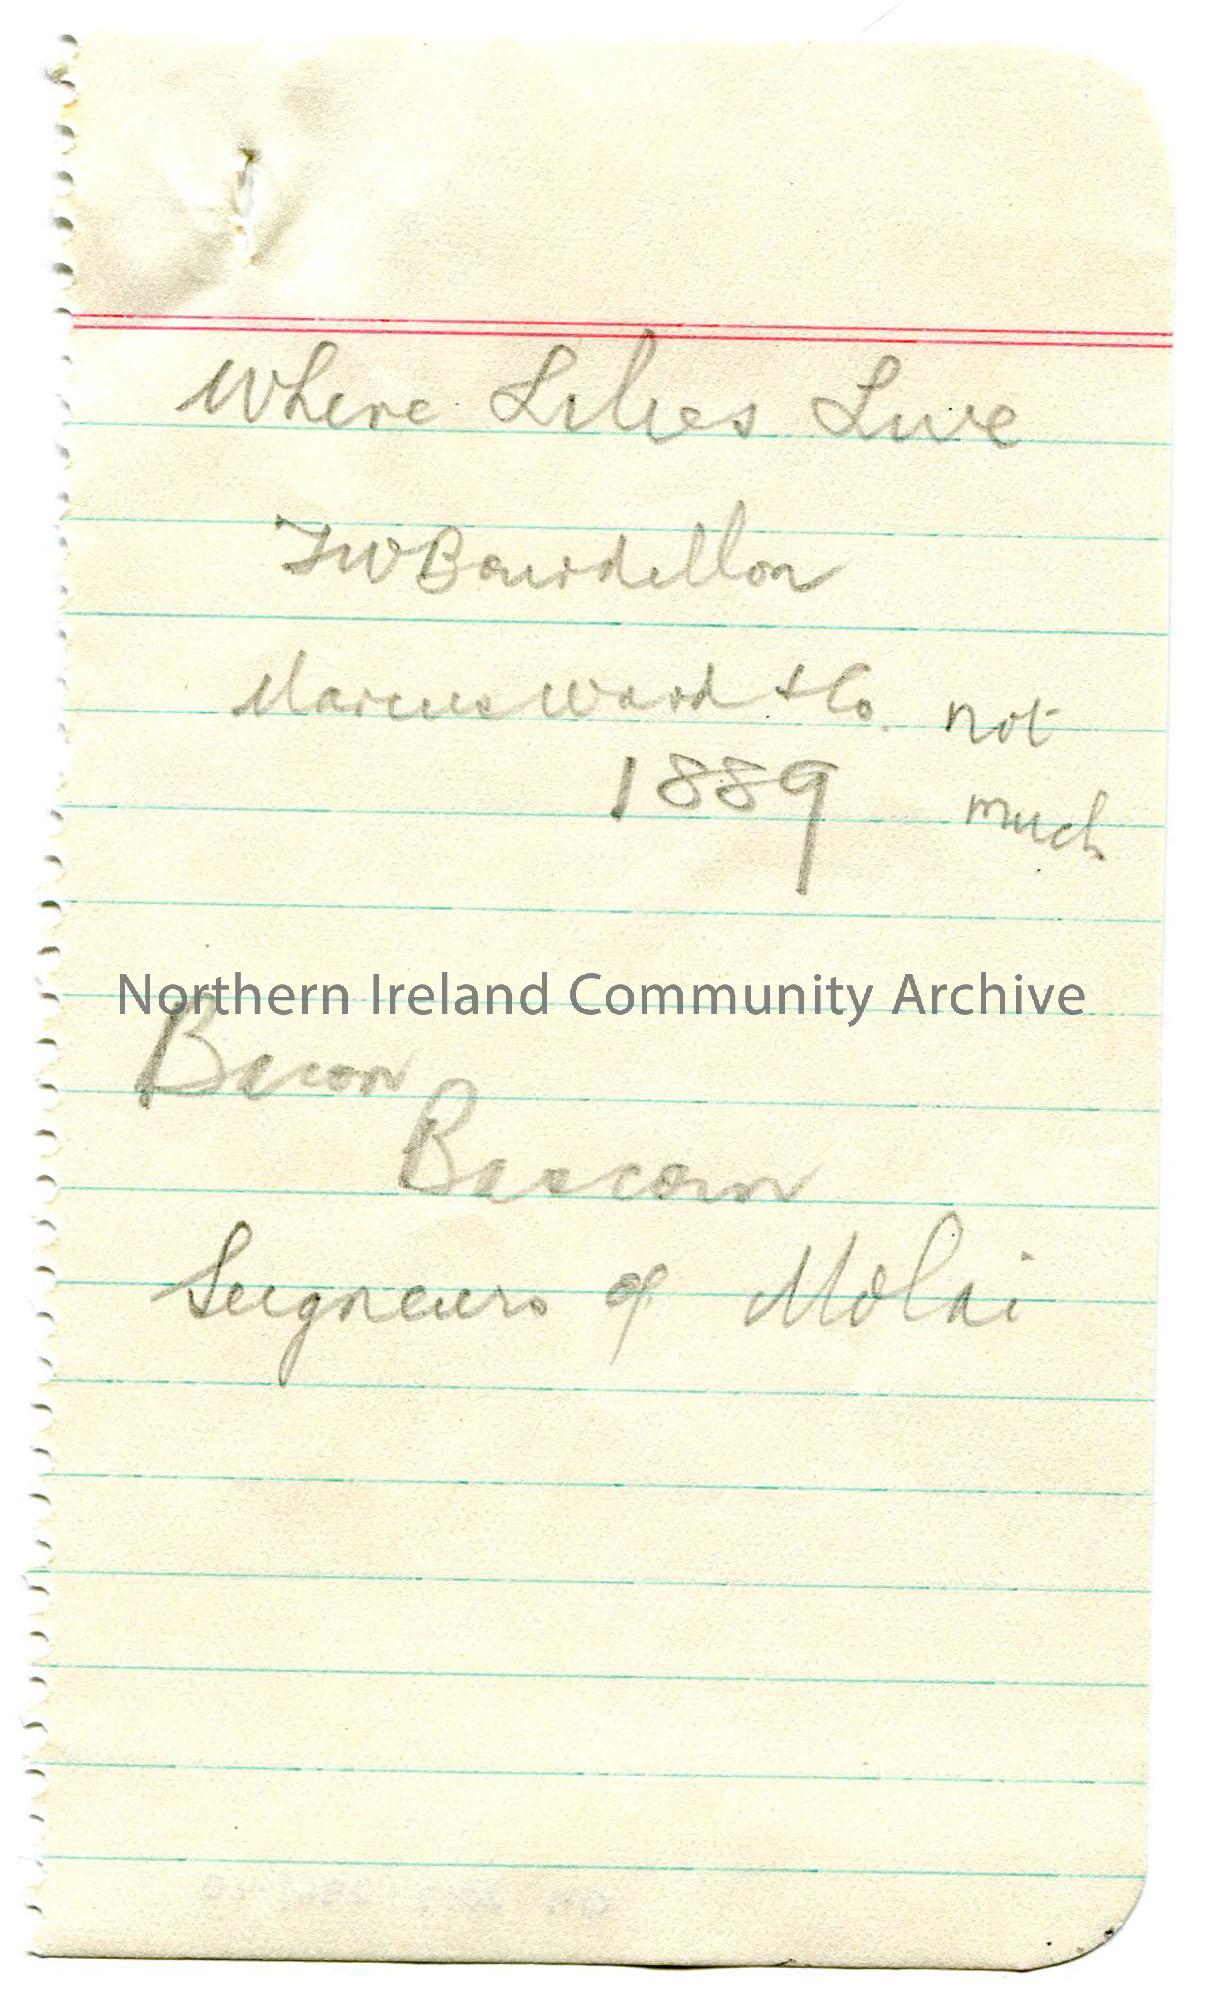 Where Lilies Live
FW Bourdillon
Marcus Ward & Co. not
1889 much
Northern Ireland Community Archive
Bacon
Bascom
Seigneurs of Molai